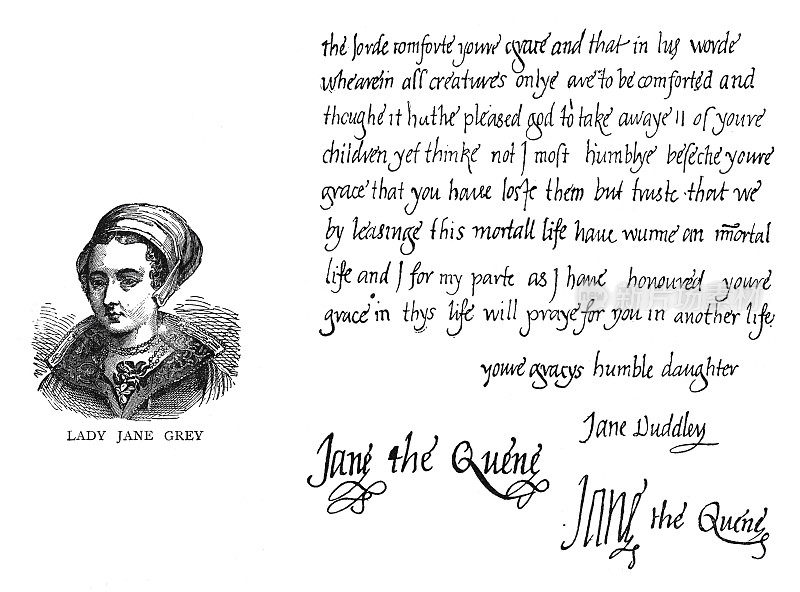 the lorde comforte youre grace and that in his worde
whearein all creatures onlye are to be comforted and
thoughe it hathe pleased god to take awaye 11 of youre
children yet thinke not I most humblye beseche youre
grace that you haue loste them but truste that we
by leauinge this mortall life haue wunne an immortal
life and I for my parte as I haue honoured youre
grace in thys life will praye for you in another life
youre gracys humble daughter
Jane Duddley
LADY JANE GREY
Jane the Quene
Jane the Quene